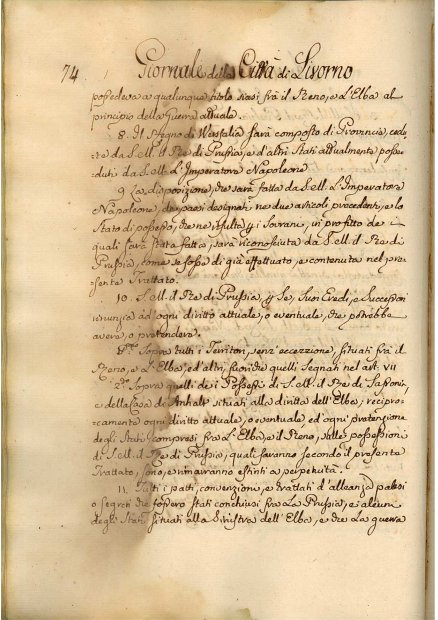 74 Giornale della Città di Livorno
possedeva a qualunque titolo siasi frà il Reno, e L'Elba al
principio della Guerra attuale.
8. Il Regno di Wesfalia sarà composto di Provincie, cedu
te da S. M. il Re di Prussia, e d'altri Stati attualmente posse
duti da S. M. L'Imperatore Napoleone
9. La disposizione, che sarà fatta da S. M. L'Imperatore
Napoleone, de paesi designati ne due articoli precedenti, e lo
Stato di possesso, che ne risulta p i Sovrani, in profitto de i
quali sarà stata fatta, sarà riconosciuta da S. M. il Re di
Prussia, come se fosse di già effettuato, e contenuta nel pre
sente Trattato.
10. S. M. il Re di Prussia p Se, Suoi Eredi, e Successori
rinunzia ad ogni diritto attuale, o eventuale, che potrebbe
avere, o pretendere.
P.º Sopra tutti i Territori, senz'eccezzione, situati frà il
Reno, e L'Elba, ed altri, fuori che quelli Segnati nel art. VII
2.º Sopra quelli de i Possessi di S. M. il Re di Sassonia,
e della Casa de Anhalt situati alla dritta dell'Elba; recipro-
camente ogni diritto attuale, o eventuale, ed ogni pretenzione
degli Stati compresi frà L'Elba, e il Reno, sulle possessioni
di S. M. il Re di Prussia, quali saranno secondo il presente
Trattato, sono, e rimarranno estinti a perpetuità.
11. Tutti i patti, convenzione, e trattati d'alleanza palesi
o segreti che fossero stati conchiusi frà La Prussia, e alcuni
degli Stati situati alla Sinistra dell'Elba, e che La guerra